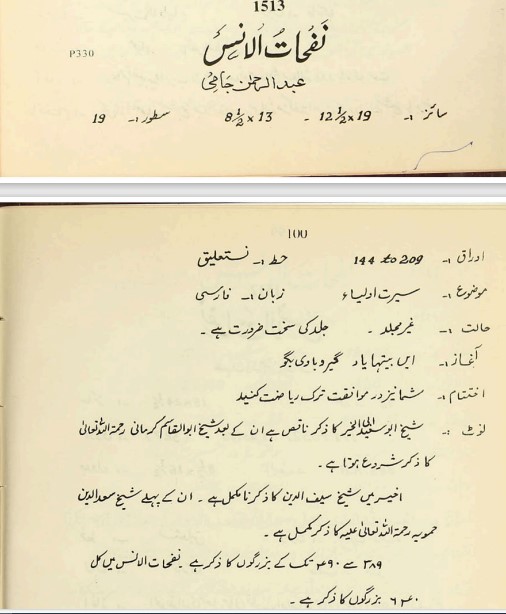 1513
نفحات الانس
P330
عبدالرحمٰن جامی
سائز :۔ 12½ x 19 ۔ 8½ x 13 سطور :۔ 19
100
اوراق :۔ 144 to 209 خط :۔ نستعلیق
موضوع :۔ سیرت اولیاء زبان :۔ فارسی
حالت :۔ غیر مجلد ۔ جلد کی سخت ضرورت ہے ۔
آغاز :۔ ایں بیتہا یاد گیر و بادی بگو
اختتام :۔ شما نیز در موافقت ترک ریاضت کنید
نوٹ :۔ شیخ ابو سعید ابی الخیر کا ذکر ناقص ہے ان کے بعد شیخ ابوالقاسم کرمانی رحمۃ اللہ تعالیٰ
کا ذکر شروع ہوتا ہے ۔
اخیر میں شیخ سیف الدین کا ذکر نامکمل ہے ۔ ان کے پہلے شیخ سعد الدین
حمویہ رحمۃ اللہ تعالیٰ علیہ کا ذکر مکمل ہے ۔
۳۸۹ سے ۴۹۰ تک کے بزرگوں کا ذکر ہے نفحات الانس میں کل
۶۴۰ بزرگوں کا ذکر ہے ۔